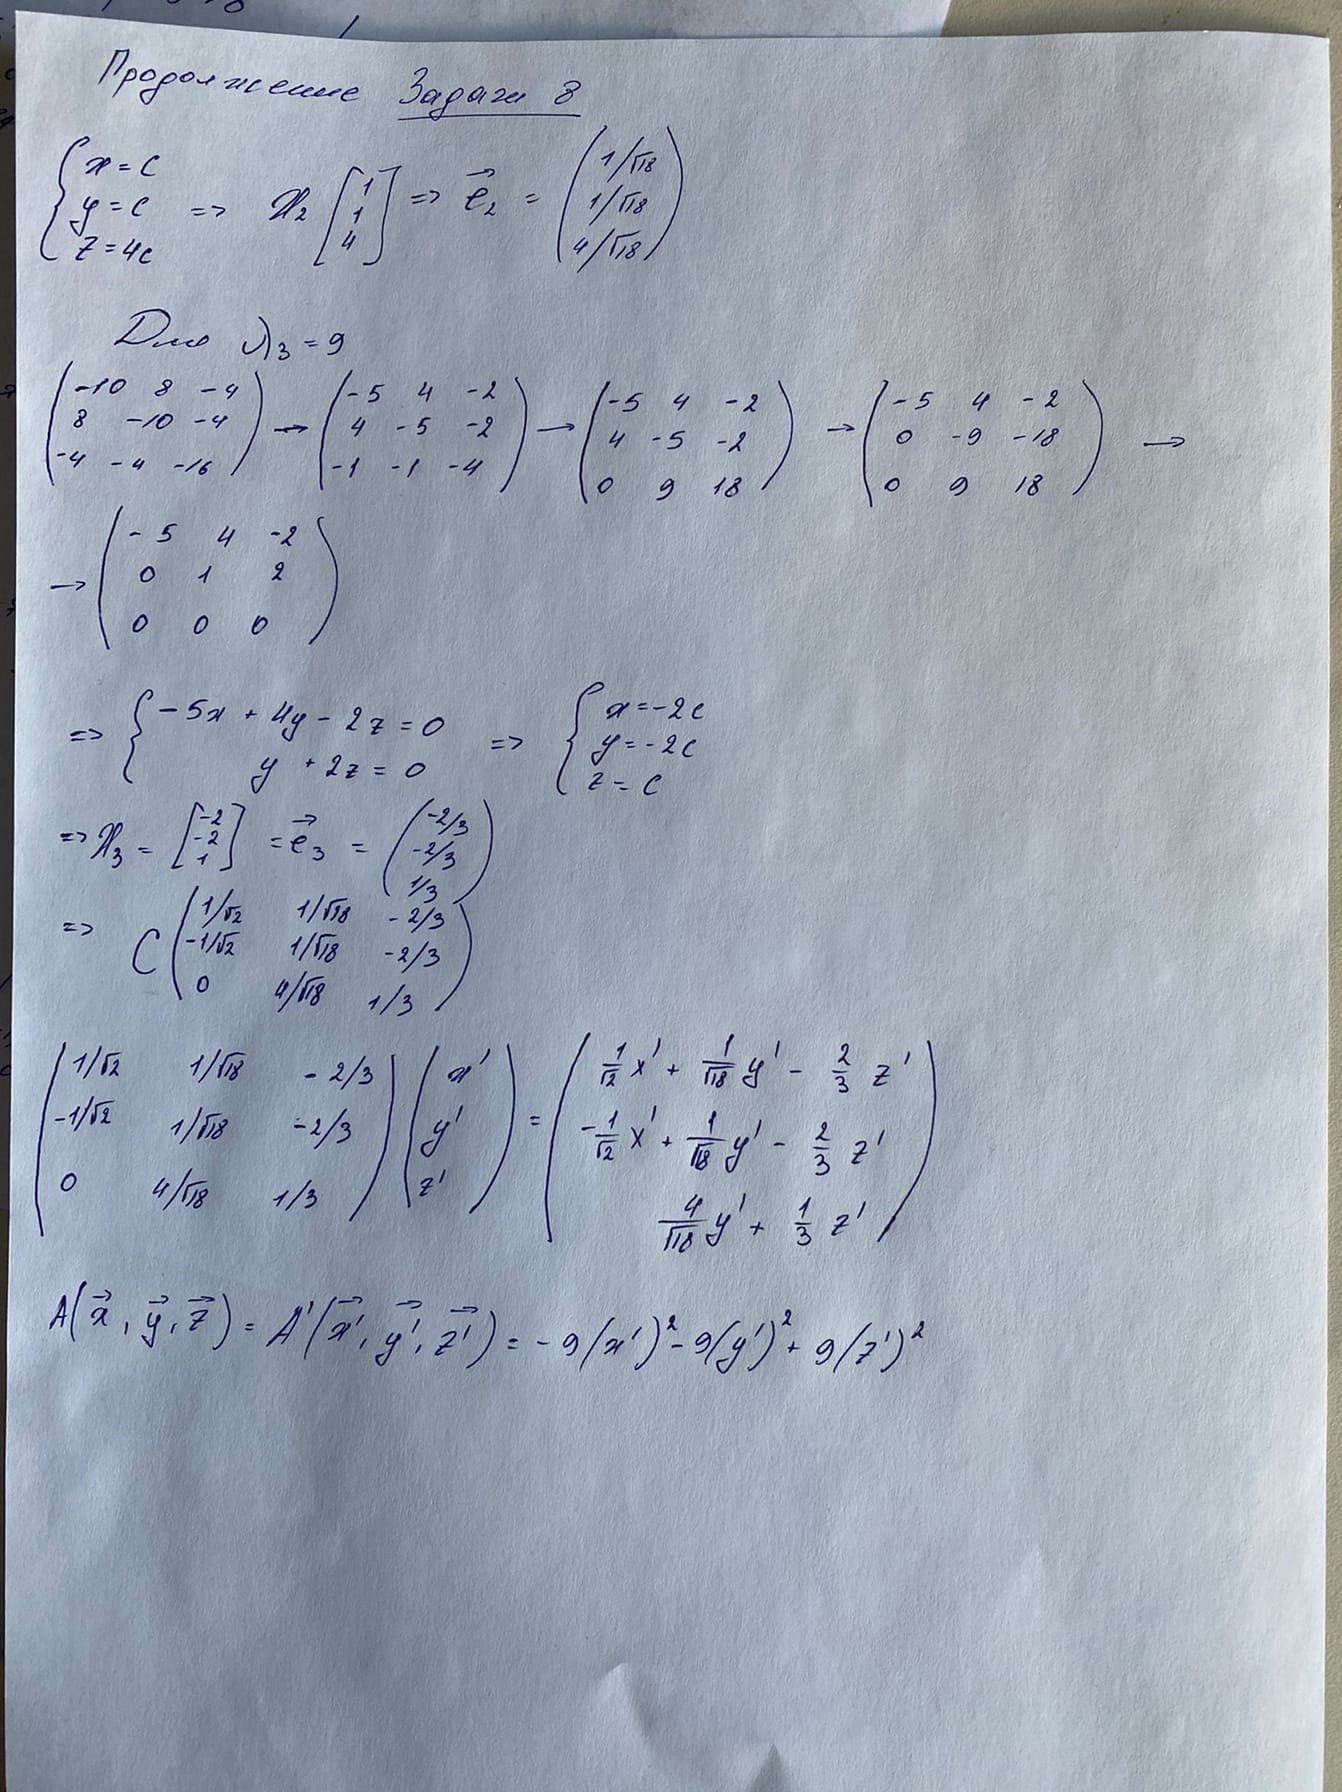 Продолжение Задачи 8
{ x = c
y = c
z = 4c => X₂ [ 1 1 4 ] => e⃗₂ = ( 1/√18 1/√18 4/√18 )
Для λ₃ = 9
( -10 8 -4
8 -10 -4
-4 -4 -16 ) → ( -5 4 -2
4 -5 -2
-1 -1 -4 ) → ( -5 4 -2
4 -5 -2
0 9 18 ) → ( -5 4 -2
0 -9 -18
0 9 18 ) →
→ ( -5 4 -2
0 1 2
0 0 0 )
=> { -5x + 4y - 2z = 0
y + 2z = 0 => { x = -2c
y = -2c
z = c
=> X₃ = [ -2 -2 1 ] = e⃗₃ = ( -2/3 -2/3 1/3 )
=> C ( 1/√2 1/√18 -2/3
-1/√2 1/√18 -2/3
0 4/√18 1/3 )
( 1/√2 1/√18 -2/3
-1/√2 1/√18 -2/3
0 4/√18 1/3 ) ( x' y' z' ) = ( 1/√2 x' + 1/√18 y' - 2/3 z'
-1/√2 x' + 1/√18 y' - 2/3 z'
4/√18 y' + 1/3 z' )
A(x⃗, y⃗, z⃗) = A'(x⃗', y⃗', z⃗') = -9(x')² - 9(y')² + 9(z')²